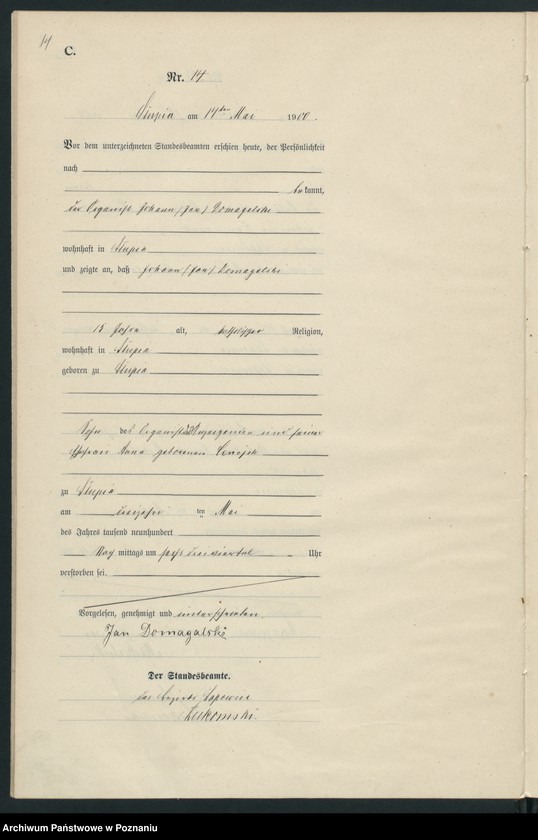 14
C.
Nr. 14
Slupia am 14ten Mai 1900.
Vor dem unterzeichneten Standesbeamten erschien heute, der Persönlichkeit
nach
bekannt,
der Organist Johann (Jan) Domagalski
wohnhaft in Slupia
und zeigte an, daß Johann (Jan) Domagalski
15 Jahre alt, katholischer Religion,
wohnhaft in Slupia
geboren zu Slupia
Sohn des Organisten und seiner
Ehefrau Anna geborenen
zu Slupia
am dreizehn ten Mai
des Jahres tausend neunhundert
Nach mittags um sechs dreiviertel Uhr
verstorben sei.
Vorgelesen, genehmigt und unterschrieben.
Jan Domagalski
Der Standesbeamte.
Lukomski.
Archiwum Państwowe w Poznaniu